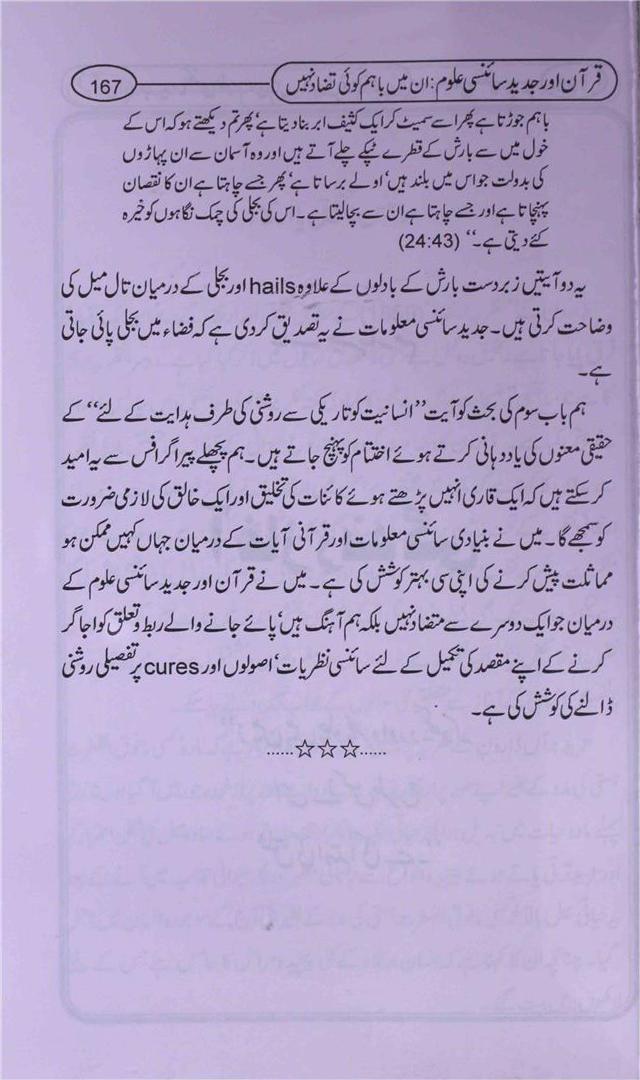 قرآن اور جدید سائنسی علوم: ان میں باہم کوئی تضاد نہیں 167
باہم جوڑتا ہے پھر اسے سمیٹ کر ایک کثیف ابر بنا دیتا ہے، پھر تم دیکھتے ہو کہ اس کے
خول میں سے بارش کے قطرے ٹپکے چلے آتے ہیں اور وہ آسمان سے ان پہاڑوں
کی بدولت جو اس میں بلند ہیں، اولے برساتا ہے، پھر جسے چاہتا ہے ان کا نقصان
پہنچاتا ہے اور جسے چاہتا ہے ان سے بچا لیتا ہے۔ اس کی بجلی کی چمک نگاہوں کو خیرہ
کئے دیتی ہے۔‘‘ (24:43)
یہ دو آیتیں زبردست بارش کے بادلوں کے علاوہ hails اور بجلی کے درمیان تال میل کی
وضاحت کرتی ہیں۔ جدید سائنسی معلومات نے یہ تصدیق کر دی ہے کہ فضاء میں بجلی پائی جاتی
ہے۔
ہم باب سوم کی بحث کو آیت ’’انسانیت کو تاریکی سے روشنی کی طرف ہدایت کے لئے‘‘ کے
حقیقی معنوں کی یاد دہانی کرتے ہوئے اختتام کو پہنچ جاتے ہیں۔ ہم پچھلے پیراگرافس سے یہ امید
کر سکتے ہیں کہ ایک قاری انہیں پڑھتے ہوئے کائنات کی تخلیق اور ایک خالق کی لازمی ضرورت
کو سمجھے گا۔ میں نے بنیادی سائنسی معلومات اور قرآنی آیات کے درمیان جہاں کہیں ممکن ہو
مماثلت پیش کرنے کی اپنی سی بہتر کوشش کی ہے۔ میں نے قرآن اور جدید سائنسی علوم کے
درمیان جو ایک دوسرے سے متضاد نہیں بلکہ ہم آہنگ ہیں، پائے جانے والے ربط و تعلق کو اجاگر
کرنے کے اپنے مقصد کی تکمیل کے لئے سائنسی نظریات، اصولوں اور cures پر تفصیلی روشنی
ڈالنے کی کوشش کی ہے۔
......☆☆☆......